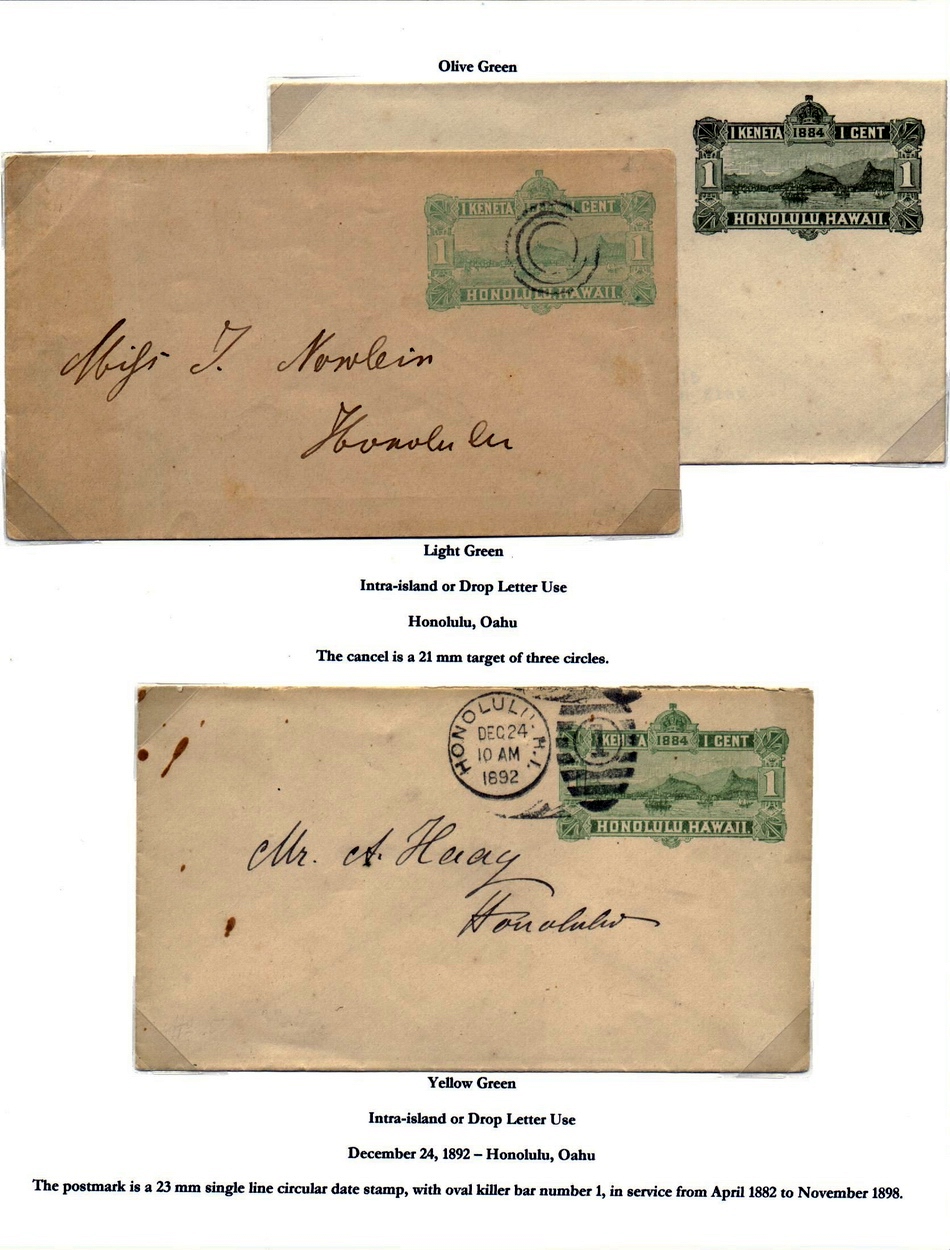 Olive Green
1 KENETA 1884 1 CENT
1 1
HONOLULU, HAWAII.
1 KENETA 1 CENT
1 1
HONOLULU, HAWAII.
Miss I. Nowlein
Honolulu
Light Green
Intra-island or Drop Letter Use
Honolulu, Oahu
The cancel is a 21 mm target of three circles.
HONOLULU. H.I.
DEC 24
10 AM
1892
1
KENETA 1884 1 CENT
1
HONOLULU, HAWAII.
Mr. A. Haag
Honolulu
Yellow Green
Intra-island or Drop Letter Use
December 24, 1892 – Honolulu, Oahu
The postmark is a 23 mm single line circular date stamp, with oval killer bar number 1, in service from April 1882 to November 1898.